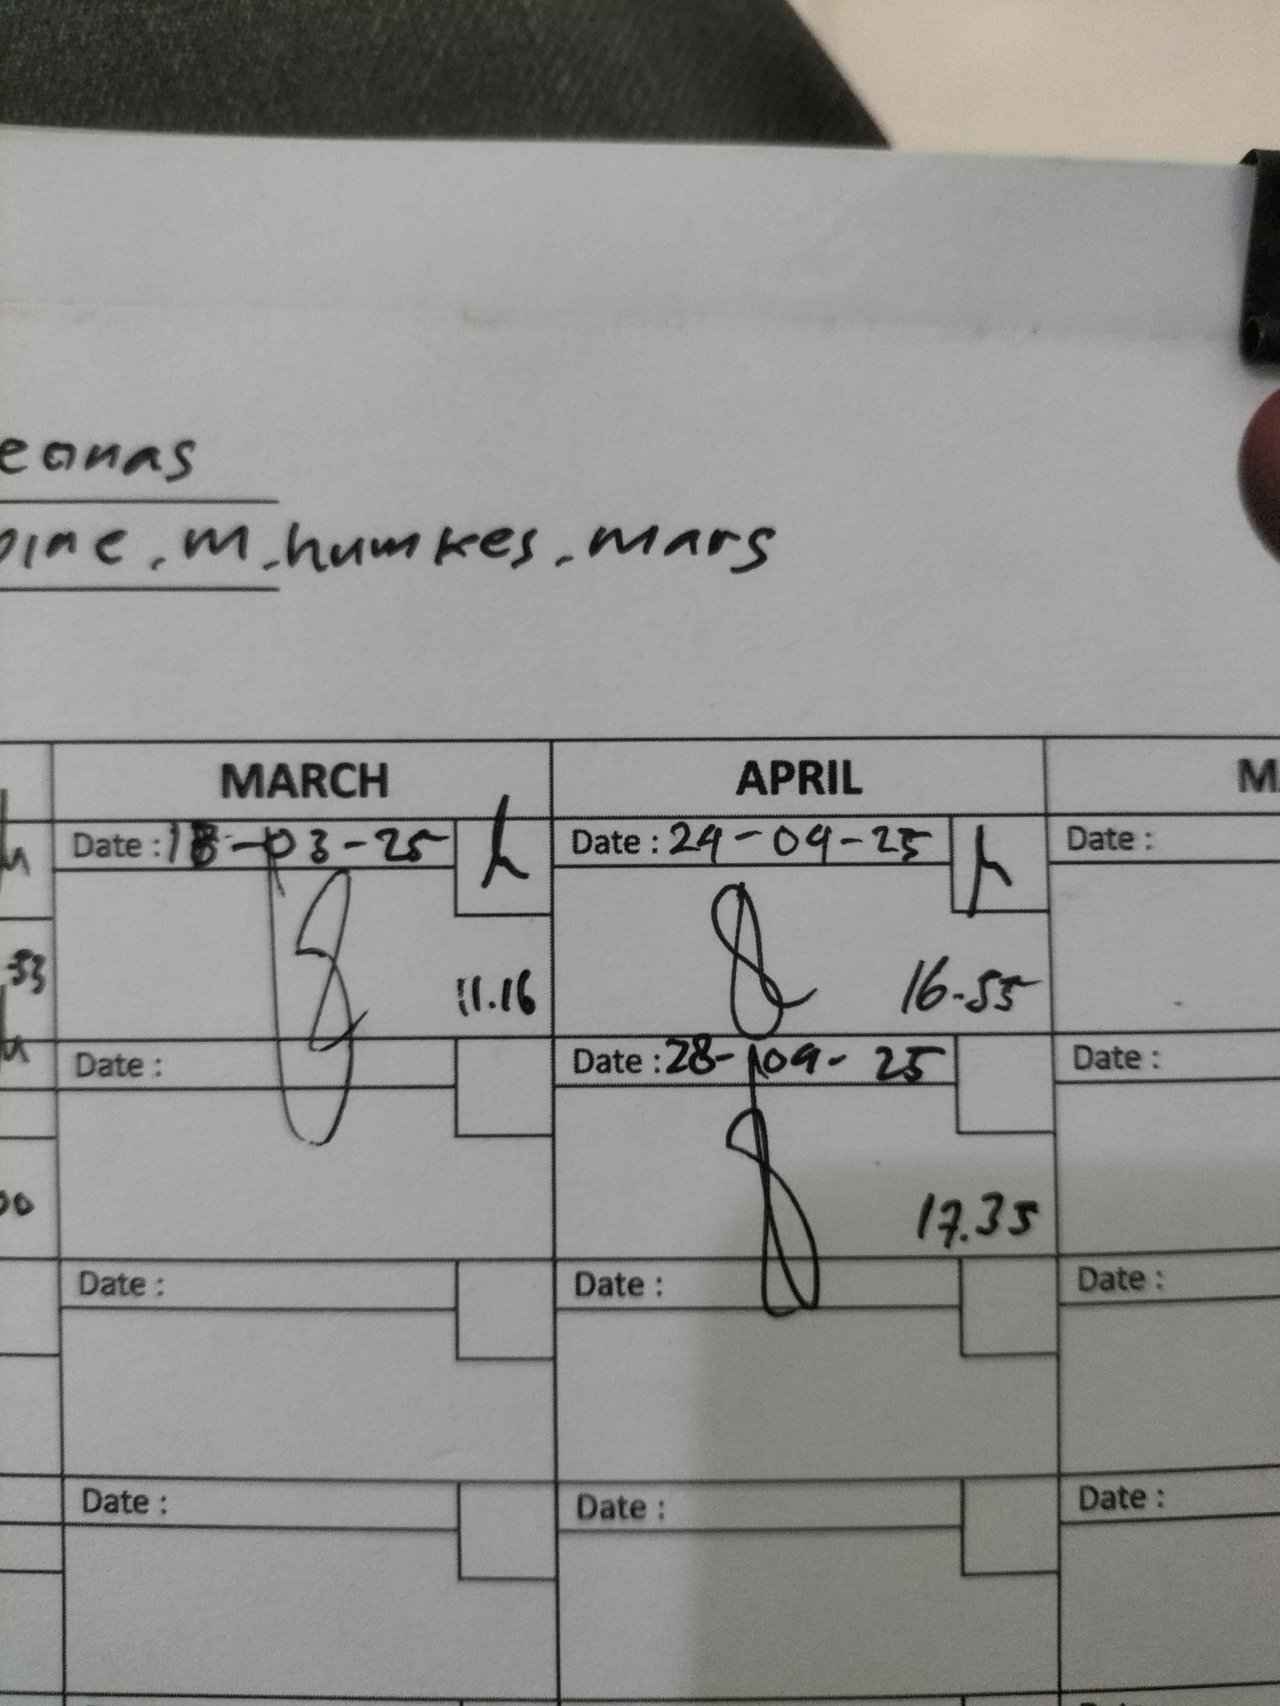 eonas
pine, M. humkes, Mars
MARCH APRIL
Date : 18-03-25 Date : 24-04-25 Date :
53 11.16 16-55
Date : Date : 28-04-25 Date :
00 17.35
Date : Date : Date :
Date : Date : Date :